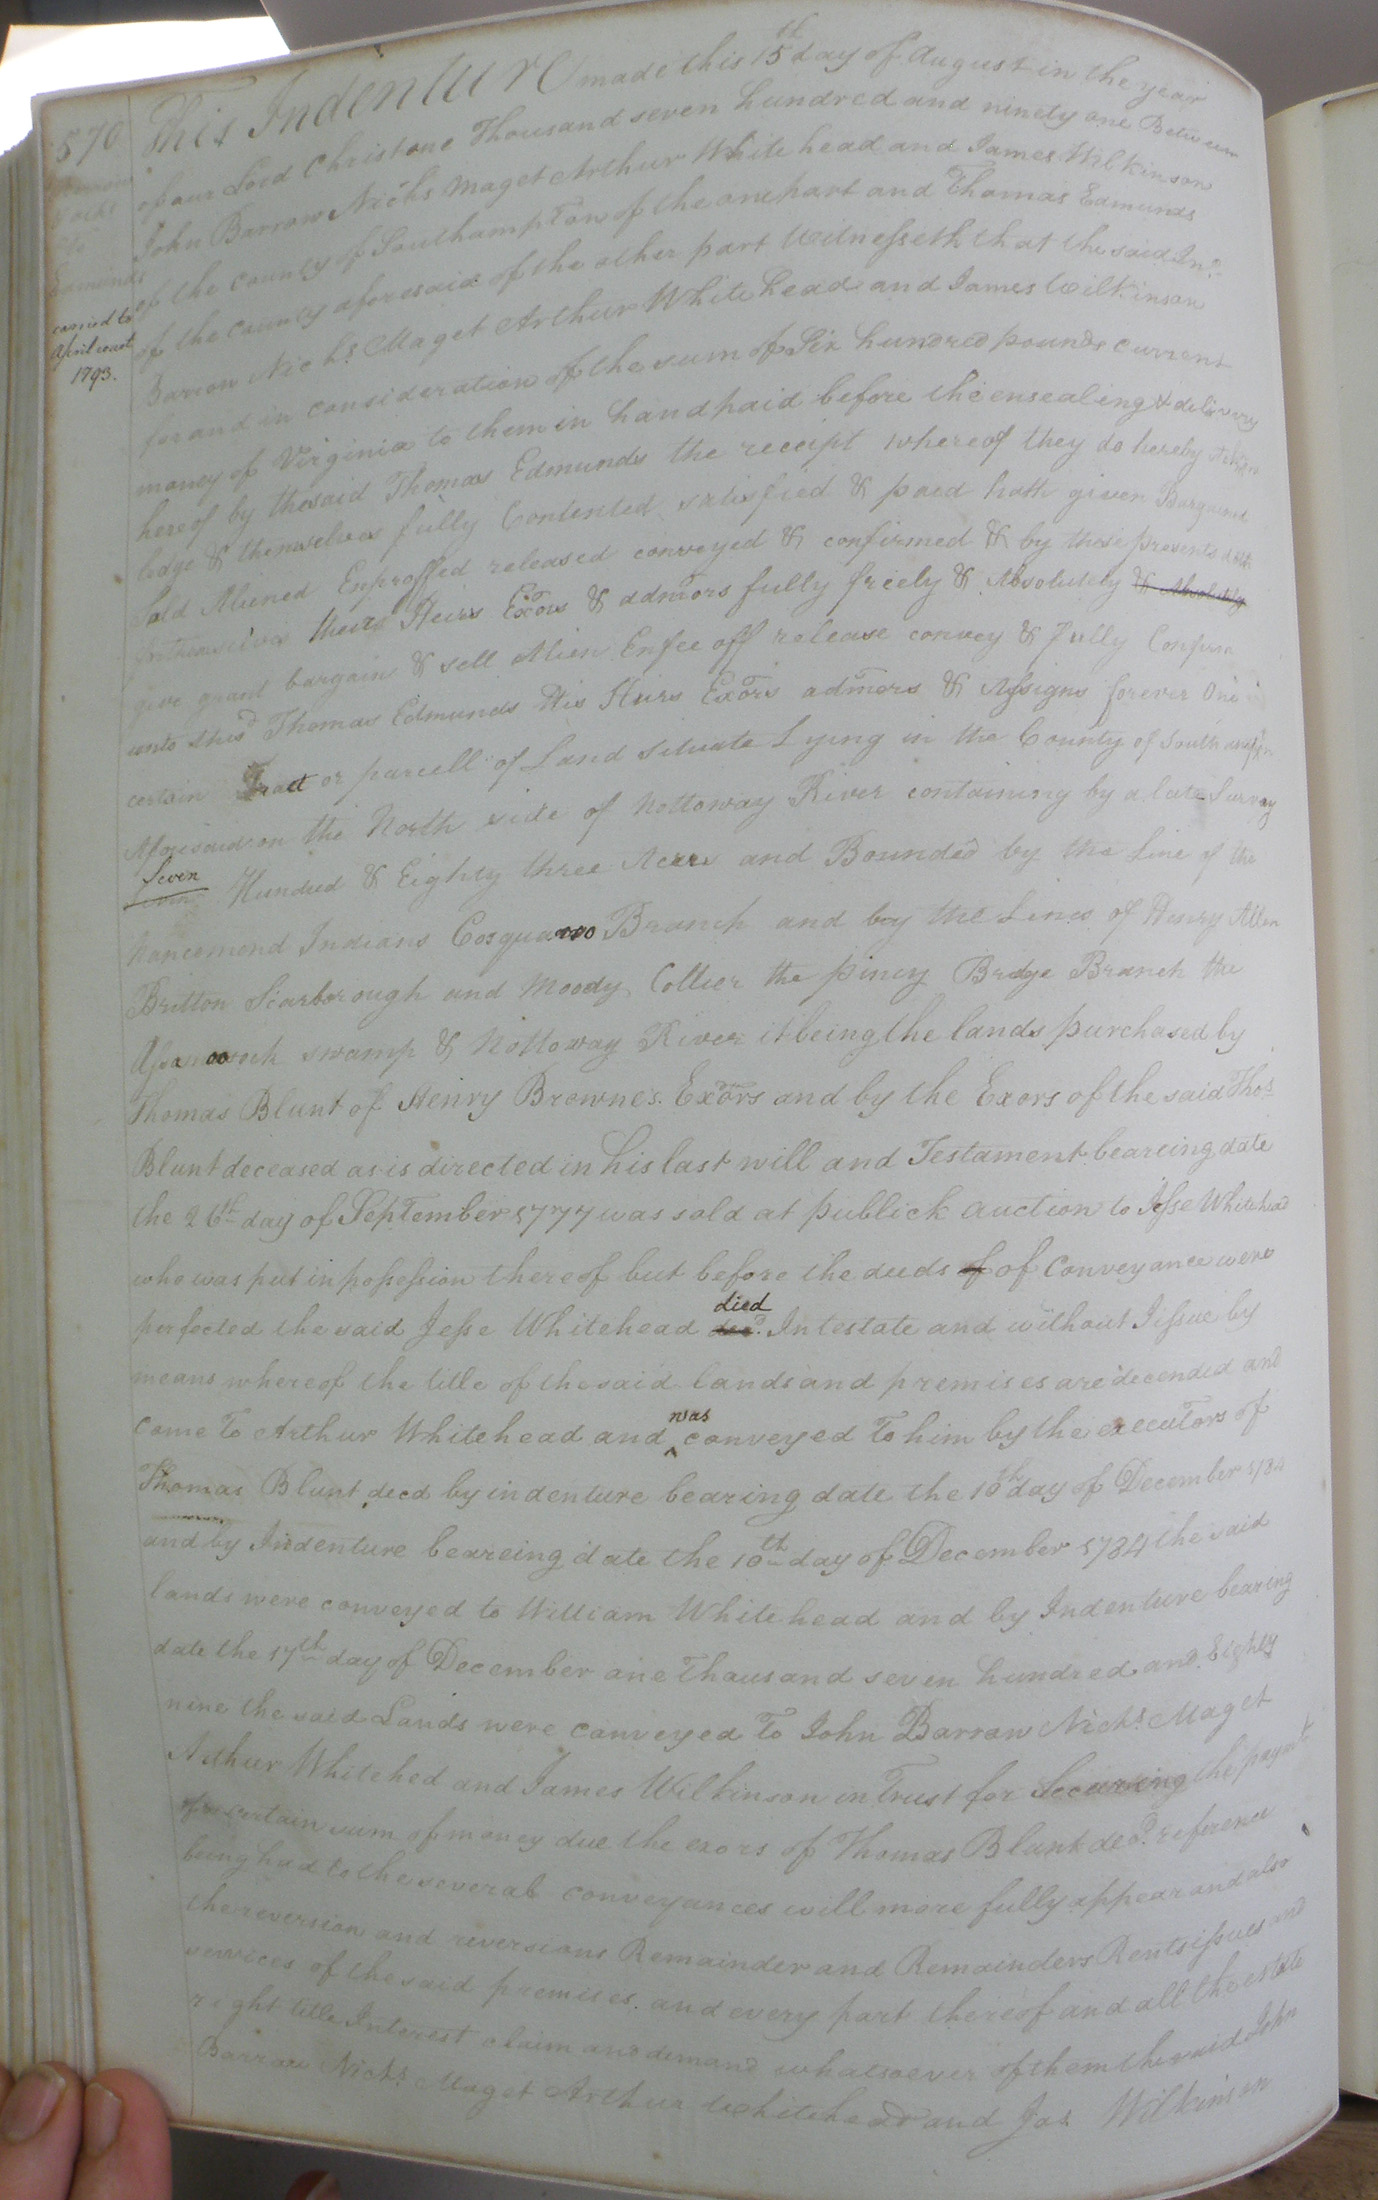 570
to
Edmunds
carried to
April court
1793.
This Indenture made this 15th day of August in the year
of our Lord Christ one Thousand seven hundred and ninety one Between
John Barrow Nichs Maget Arthur Whitehead and James Wilkinson
of the county of Southampton of the one part and Thomas Edmunds
of the county aforesaid of the other part Witnesseth that the said Jno.
Barrow Nichs. Maget Arthur Whitehead and James Wilkinson
for and in consideration of the sum of Six hundred pounds current
money of Virginia to them in hand paid before the ensealing & delivery
hereof by the said Thomas Edmunds the receipt whereof they do hereby Acknow
ledge & themselves fully Contented satisfied & paid hath given Bargained
Sold Aliened Enfeoffed released conveyed & confirmed & by these presents doth
for themselves their Heirs Exors & admors fully freely & Absolutely & Absolutely
give grant bargain & sell Alien Enfee off release convey & fully Confirm
unto the sd Thomas Edmunds His Heirs Exors admors & Assigns forever One
certain Tract or parcell of Land Situate Lying in the County of Southampton
Aforesaid on the North side of Nottoway River containing by a late Survey
Seven Hundred & Eighty three Acres and Bounded by the Line of the
Nancemond Indians Cosquawoo Branch and by the Lines of Henry Allen
Britton Scarborough and Moody Collier the piney Bridge Branch the
swamp & Nottoway River it being the lands purchased by
Thomas Blunt of Henry Browne's Exors and by the Exors of the said Thos.
Blunt deceased as is directed in his last will and Testament beareing date
the 26th day of September 1777 was sold at publick auction to Jesse Whitehead
who was put in possession thereof but before the deeds of of Conveyance were
perfected the said Jesse Whitehead decd. died Intestate and without Issue by
means whereof the title of the said lands and premises are decended and
come To Arthur Whitehead and was conveyed To him by the executors of
Thomas Blunt decd by indenture bearing date the 10th day of December 1784
and by Indenture beareing date the 10th day of December 1784 the said
lands were conveyed to William Whitehead and by Indenture bearing
date the 17th day of December one Thousand seven hundred and Eighty
nine the said Lands were conveyed To John Barrow Nichs. Maget
Arthur Whitehed and James Wilkinson in Trust for Securing the payment
of a certain sum of money due the exors of Thomas Blunt decd. reference
being had to the several conveyances will more fully appear and also
the reversion and reversions Remainder and Remainders Rents issues and
services of the said premises and every part thereof and all the estate
right title Interest claim and demand whatsoever of them the said John
Barrow Nichs. Maget Arthur Whitehead and Jas Wilkinson